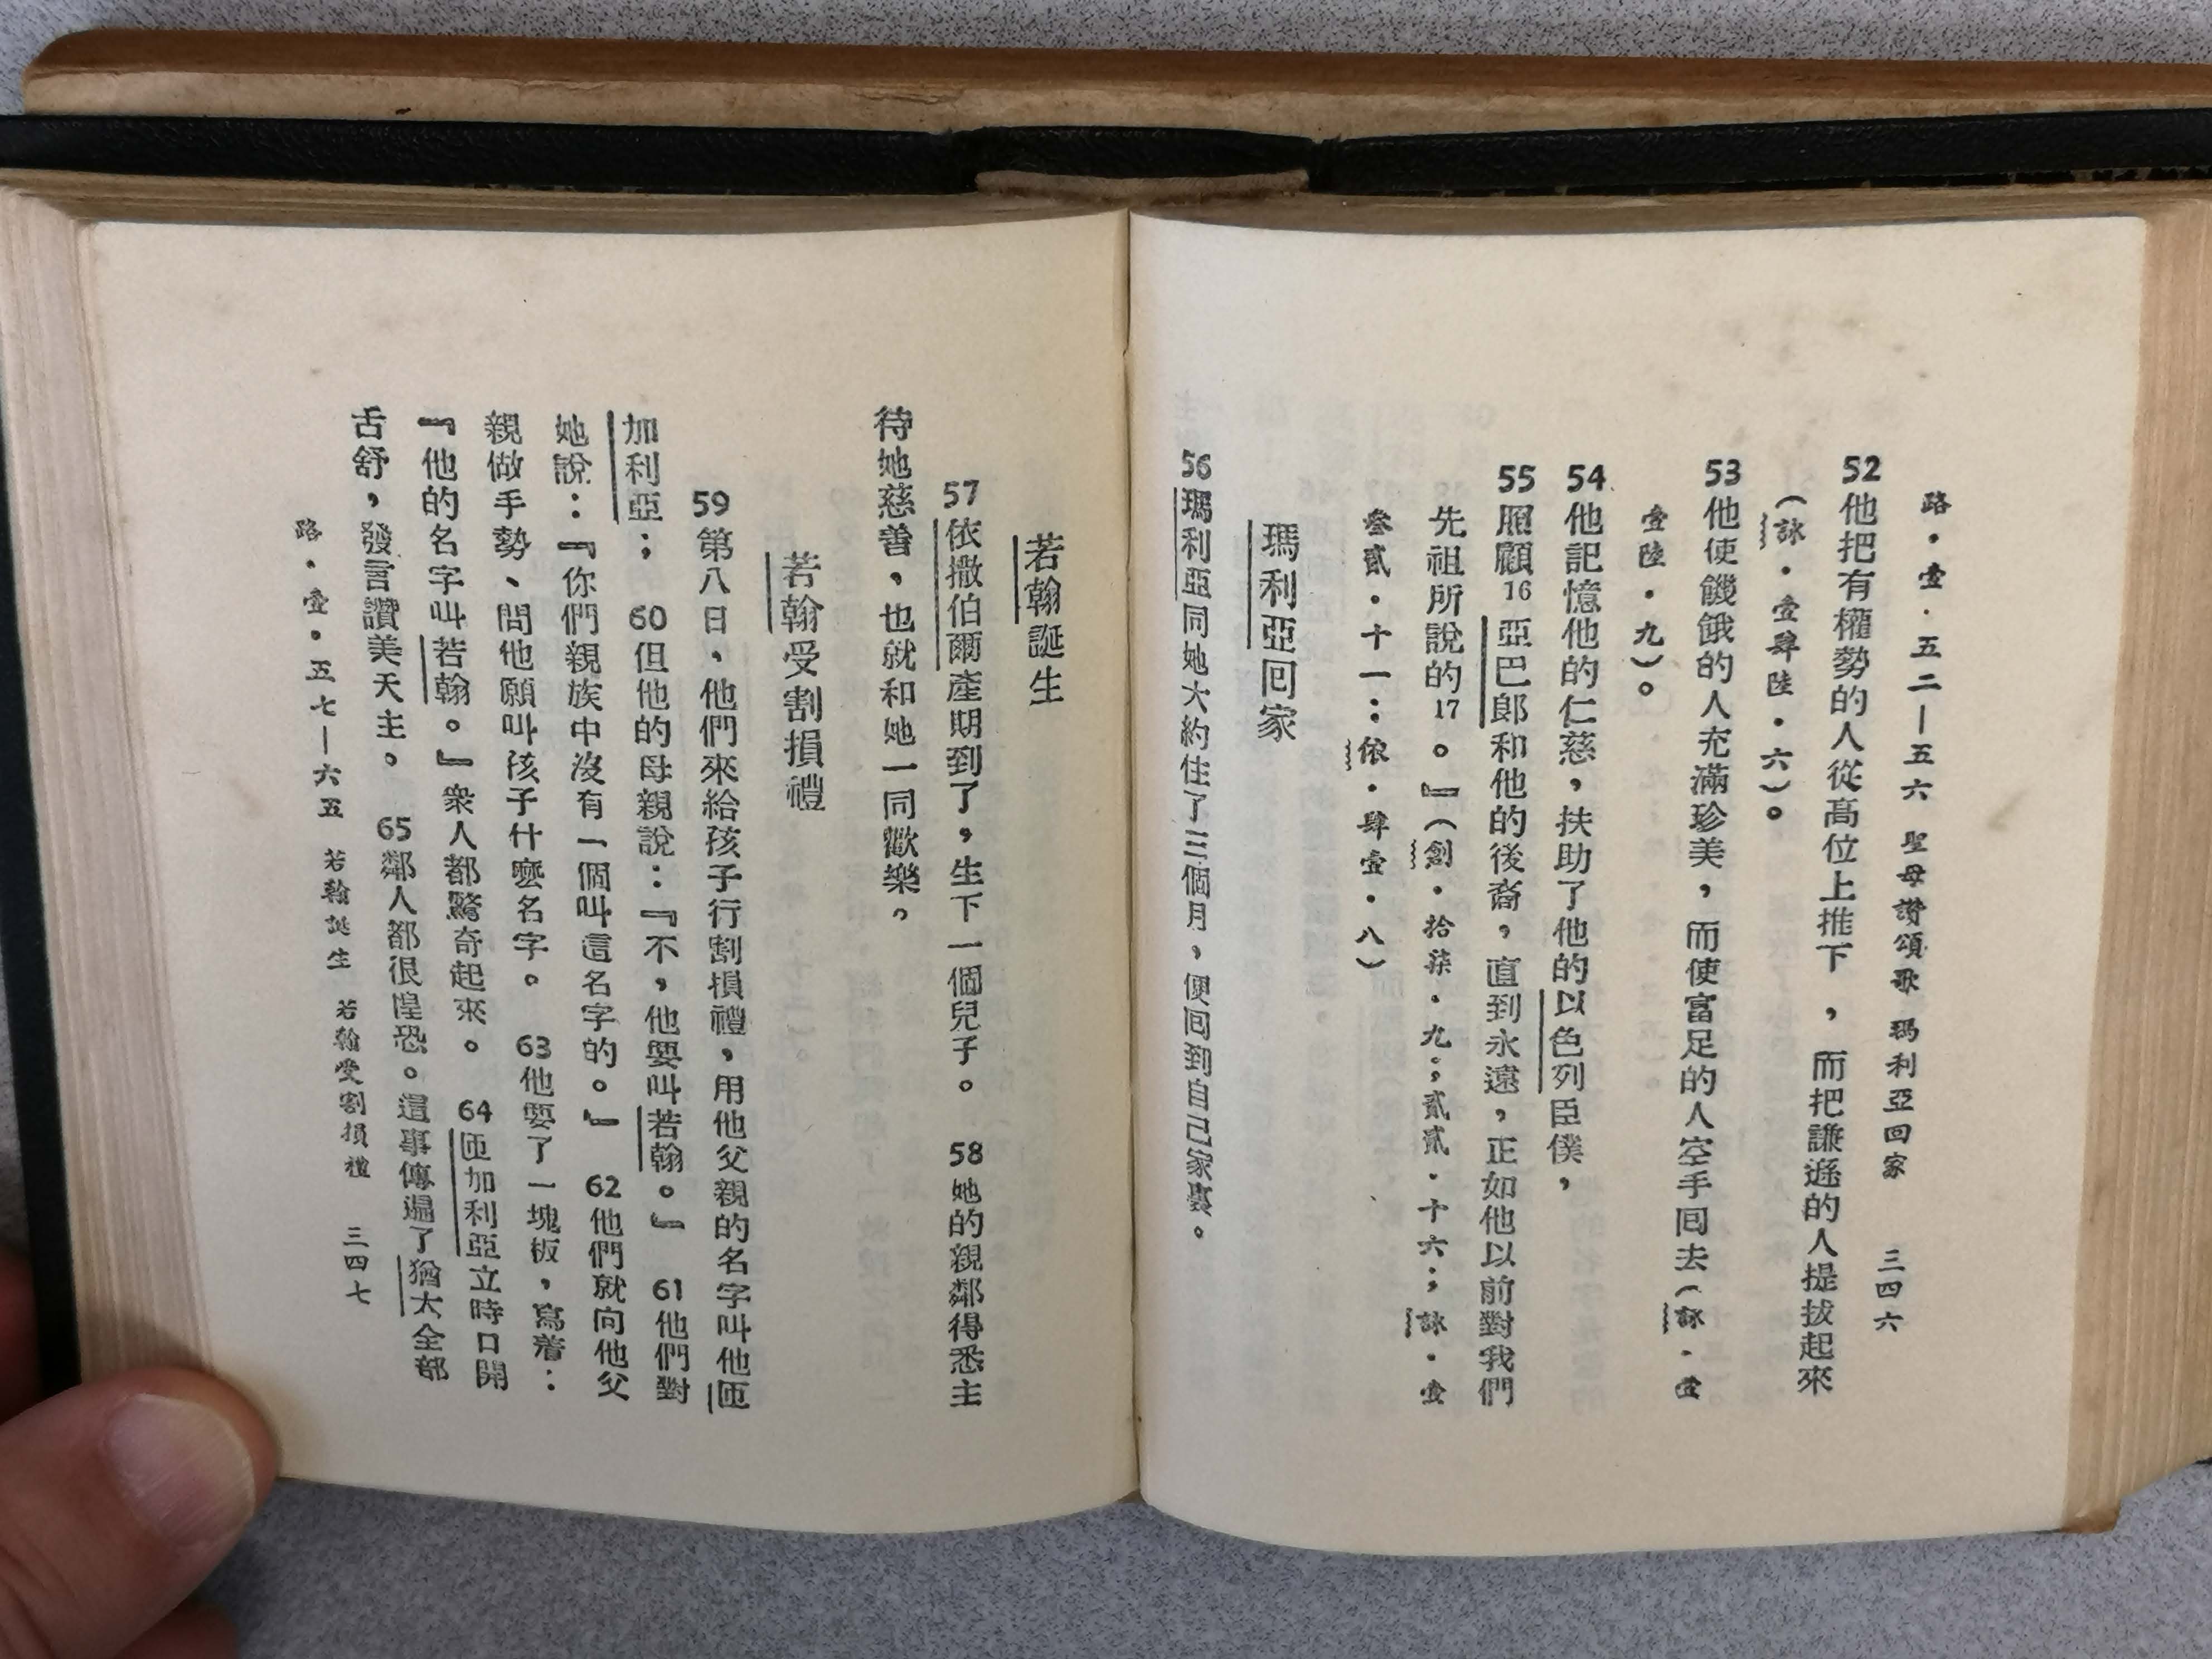 路・壹・五二—五六 聖母讚頌歌 瑪利亞回家 三四六
52他把有權勢的人從高位上推下,而把謙遜的人提拔起來
(詠・壹肆陸・六)。
53他使饑餓的人充滿珍美,而使富足的人空手囘去(詠・壹
壹陸・九)。
54他記憶他的仁慈,扶助了他的以色列臣僕,
55照顧16亞巴郎和他的後裔,直到永遠,正如他以前對我們
先祖所說的17。』(創・拾柒・九;貳貳・十六;詠・壹
叁貳・十一:依・肆壹・八)
瑪利亞囘家
56瑪利亞同她大約住了三個月,便囘到自己家裏。
若翰誕生
57依撒伯爾產期到了,生下一個兒子。 58她的親鄰得悉主
待她慈善,也就和她一同歡樂。
若翰受割損禮
59第八日,他們來給孩子行割損禮,用他父親的名字叫他匝
加利亞; 60但他的母親說:『不,他要叫若翰。』 61他們對
她說:『你們親族中沒有一個叫這名字的。』 62他們就向他父
親做手勢、問他願叫孩子什麼名字。 63他要了一塊板,寫着:
『他的名字叫若翰。』衆人都驚奇起來。 64匝加利亞立時口開
舌舒,發言讚美天主。 65鄰人都很惶恐。這事傳遍了猶太全部
路・壹・五七—六五 若翰誕生 若翰受割損禮 三四七